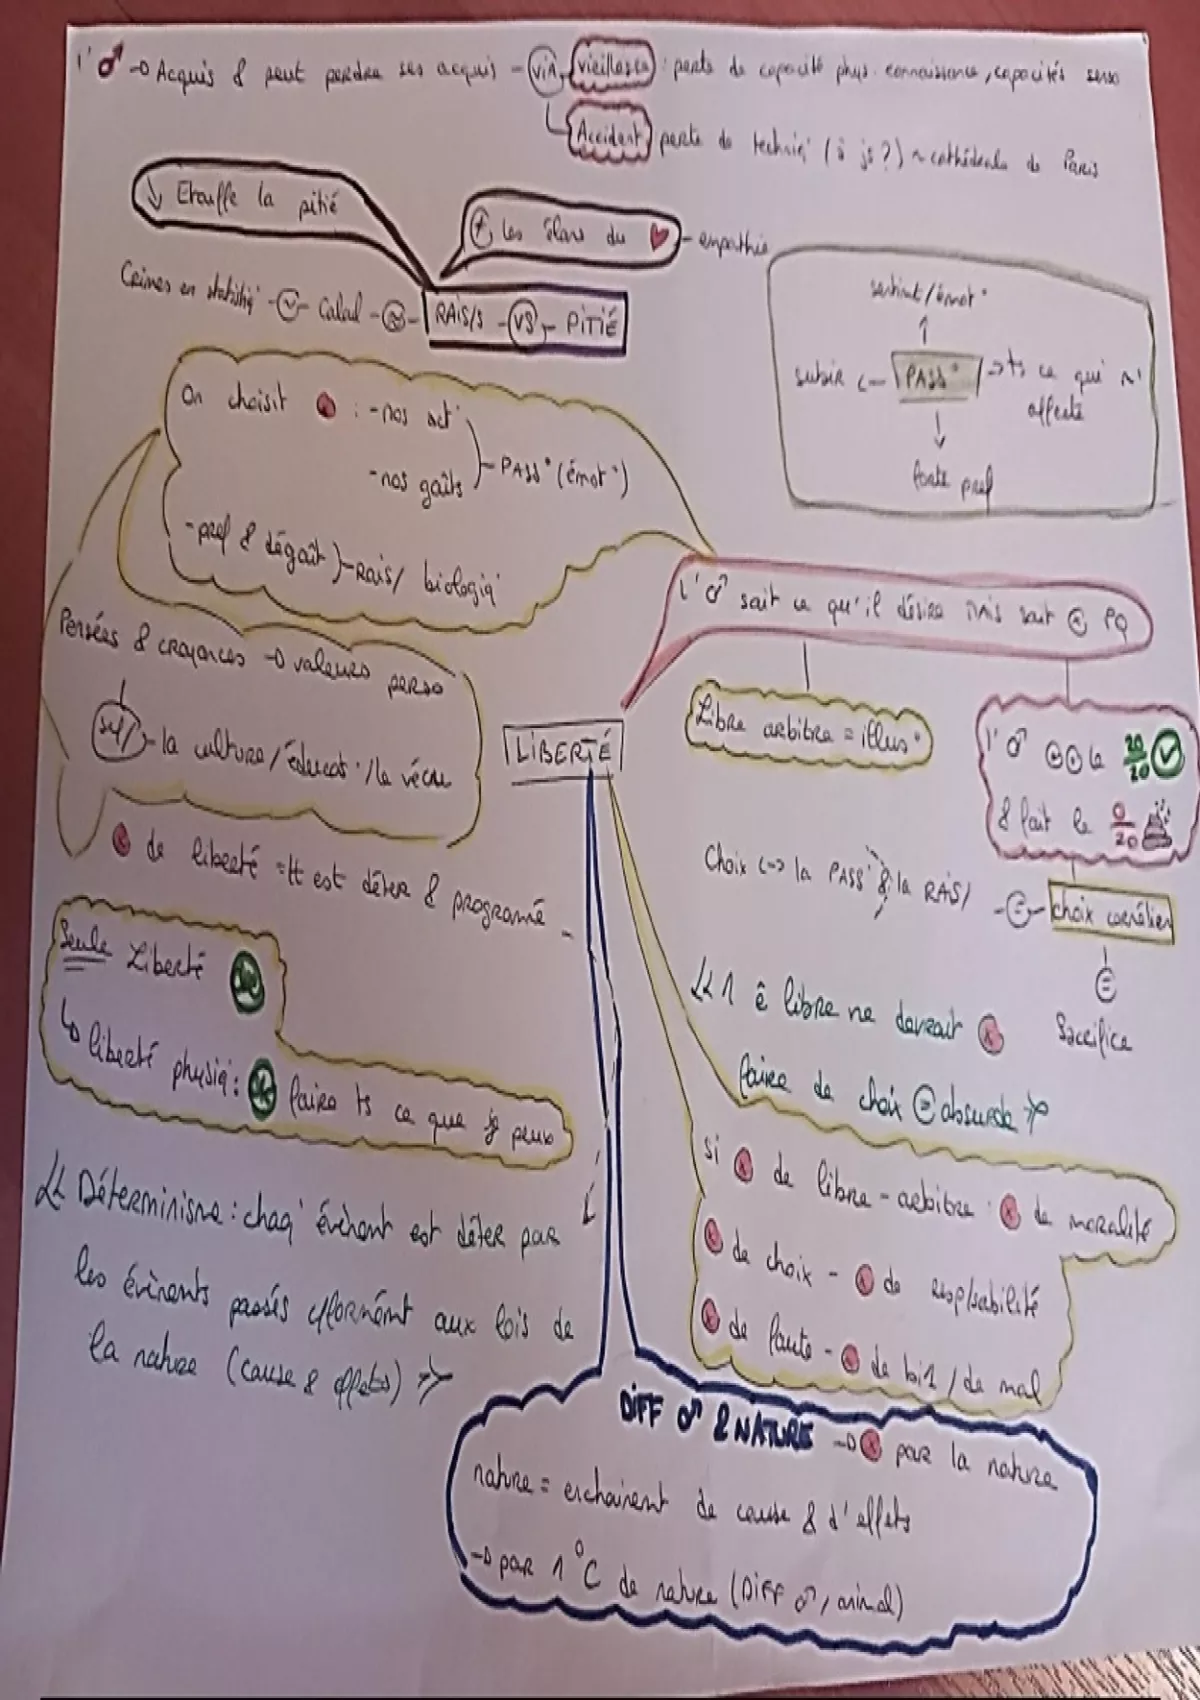 l'♂ → Acquis & peut perdre ses acquis - VIA vieillesse : perte de capacité phys. connaissance, capacités senso
Accident perte de techniq' (ô js ?) ~ cathédrale de Paris
↓ Etouffe la pitié
+ les élans du ♥ - empathie
Crimes en statistiq' - Calcul - RAIS/S - VS - PITIÉ
sentimt/émot°
subir ← PASS° → ts ce qui n'
affecte
forte pref
On choisit x : - nos act°
- nos goûts
PASS° (émot°)
- pref & dégoût } - Rais/ biologiq'
l'♂ sait ce qu'il désire mais sait PQ
Pensées & croyances → valeurs perso
- la culture/éducat°/le vécu
LIBERTÉ
Libre arbitre = illus°
l'♂ le 20/20
& fait le 0/20
x de liberté = tt est déter & programé
Choix ↔ la PASS° & la RAIS/ - = - choix cornélien
=
Sacrifice
Seule Liberté
↳ liberté physiq' : ok faire ts ce que je peux
<< 1 ê libre ne devrait x
faire de choix = absurde >>
si x de libre-arbitre : x de moralité
x de choix - x de resp/sabilité
x de faute - x de bi1 / de mal
<< Déterminisme : chaq' évènemt est déter par
les évènemts passés c/formémt aux lois de
la nature (cause & effets) >>
DIFF ♂ & NATURE → x par la nature
nature = enchainemt de cause & d'effets
→ par 1°C de nature (DIFF ♂, animal)